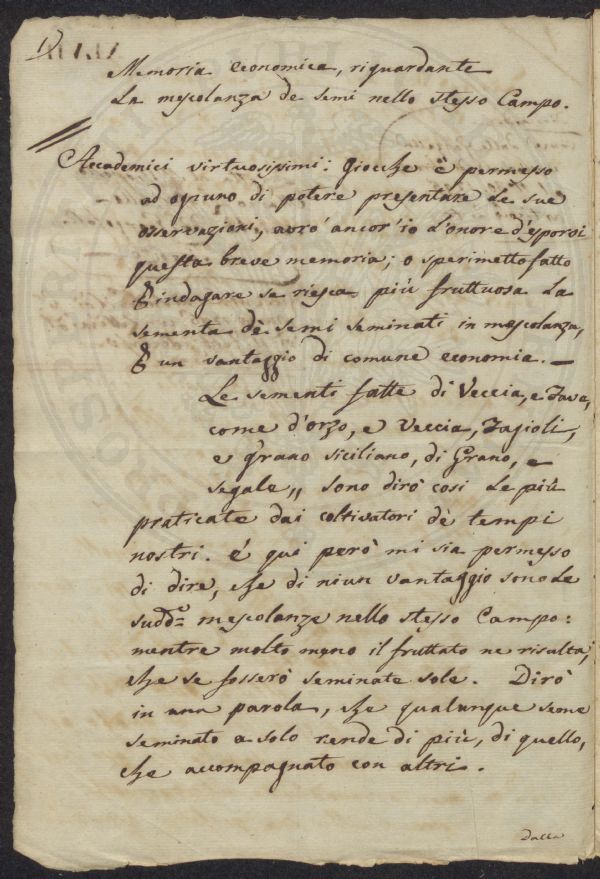 1)
Memoria economica, riguardante
La mescolanza de semi nello stesso Campo.
Accademici virtuosissimi: Giocche è permesso
ad ognuno di potere presentare Le sue
osservazioni, avrò ancor'io L'onore d'esporvi
questa breve memoria; o sperimetto fatto
indagare se riesca più fruttuosa La
sementa dè semi seminati in mescolanza,
un vantaggio di comune economia. —
Le sementi fatte di Veccia, e Fava,
come d'orzo, e Veccia, Fagioli,
e grano siciliano, di Grano, e
segale,, sono dirò cosi Le più
praticate dai coltivatori dè tempi
nostri. é qui però mi sia permesso
di dire, che di niun vantaggio sono Le
sudd.e mescolanze nello stesso Campo:
mentre molto meno il fruttato ne risulta;
che se fosserò seminate sole. Dirò
in una parola, che qualunque seme
seminato a solo rende di più, di quello,
che accompagnato con altri.
Dalla